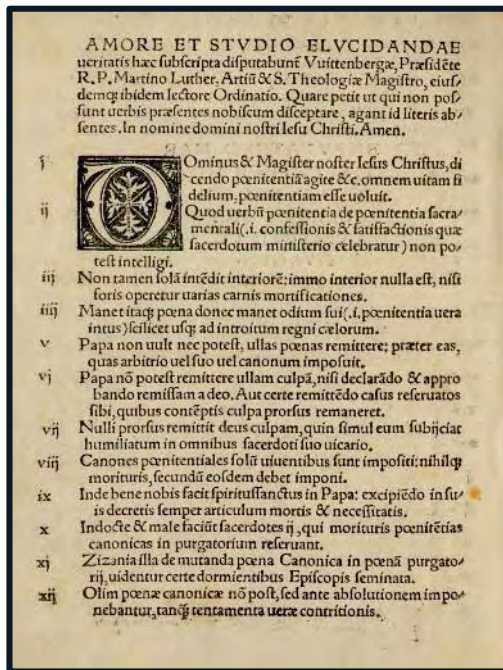 AMORE ET STVDIO ELVCIDANDAE
ueritatis hæc subscripta disputabunt̃ Vuittenbergæ, Præsidẽte
R. P. Martino Luther, Artiũ & S. Theologiæ Magistro, eius⸗
demq; ibidem lectore Ordinatio. Quare petit ut qui non pos⸗
sunt uerbis præsentes nobiscum disceptare, agant id literis ab⸗
sentes. In nomine domini nostri Iesu Christi. Amen.
i Ominus & Magister noster Iesus Christus, di
cendo pœnitentiã agite &c. omnem uitam fi
delium, pœnitentiam esse uoluit.
ij Quod uerbũ pœnitentia de pœnitentia sacra⸗
mentali (.i. confessionis & satisfactionis quæ
sacerdotum ministerio celebratur) non po⸗
test intelligi.
iij Non tamen solã intẽdit interiorẽ: immo interior nulla est, nisi
foris operetur uarias carnis mortificationes.
iiij Manet itaq; pœna donec manet odium sui (.i. pœnitentia uera
intus) scilicet usq; ad introitum regni cælorum.
v Papa non uult nec potest, ullas pœnas remittere: præter eas,
quas arbitrio uel suo uel canonum imposuit.
vj Papa nõ potest remittere ullam culpã, nisi declarãdo & appro
bando remissam a deo. Aut certe remittẽdo casus reseruatos
sibi, quibus contẽptis culpa prorsus remaneret.
vij Nulli prorsus remittit deus culpam, quin simul eum subijciat
humiliatum in omnibus sacerdoti suo uicario.
viij Canones pœnitentiales solũ uiuentibus sunt impositi: nihilq;
morituris, secundũ eosdem debet imponi.
ix Inde bene nobis facit spiritussanctus in Papa: excipiẽdo in su⸗
is decretis semper articulum mortis & necessitatis.
x Indocte & male faciũt sacerdotes ij, qui morituris pœnitẽtias
canonicas in purgatorium reseruant.
xj Zizania illa de mutanda pœna Canonica in pœnã purgato⸗
rij, uidentur certe dormientibus Episcopis seminata.
xij Olim pœnæ canonicæ nõ post, sed ante absolutionem impo⸗
nebantur, tanq̃ tentamenta ueræ contritionis.